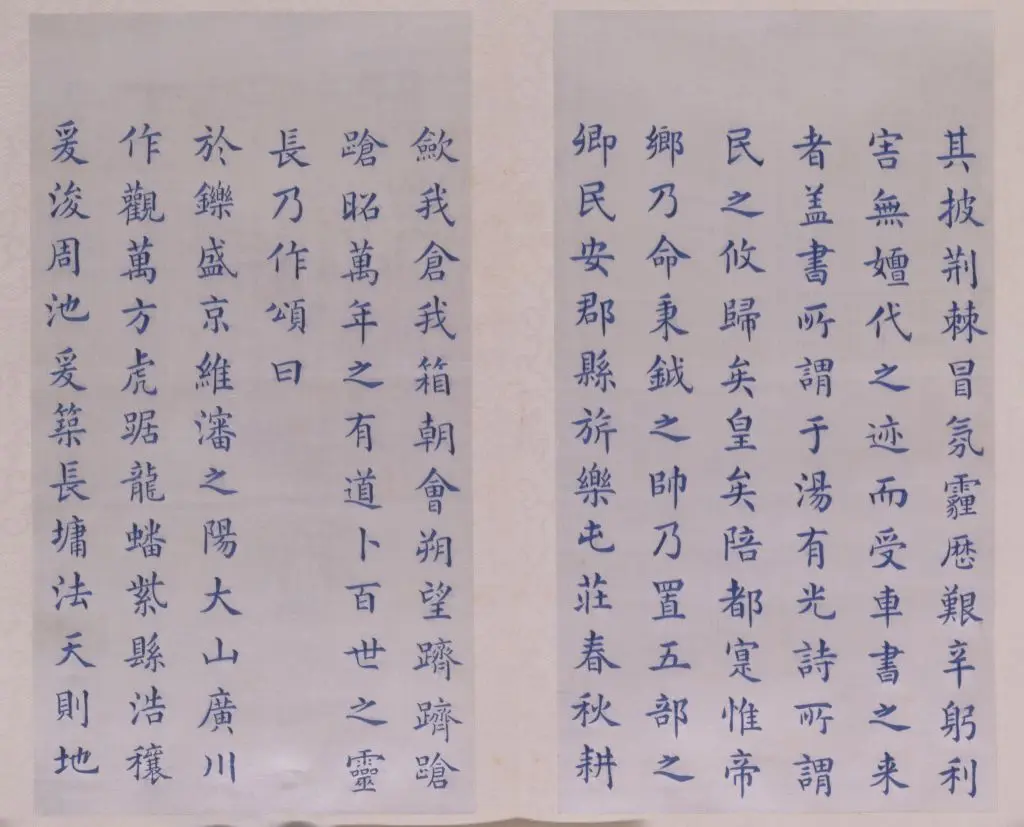 其披荆棘冒氛霾歷艱辛躬利
害無嬗代之迹而受車書之来
者盖書所謂于湯有光詩所謂
民之攸歸矣皇矣陪都寔惟帝
鄉乃命秉鉞之帥乃置五部之
卿民安郡縣旂樂屯莊春秋耕
歛我倉我箱朝會朔望躋躋蹌
蹌昭萬年之有道卜百世之靈
長乃作頌曰
於鑠盛京維瀋之陽大山廣川
作觀萬方虎踞龍蟠紫縣浩穰
爰浚周池爰築長墉法天則地